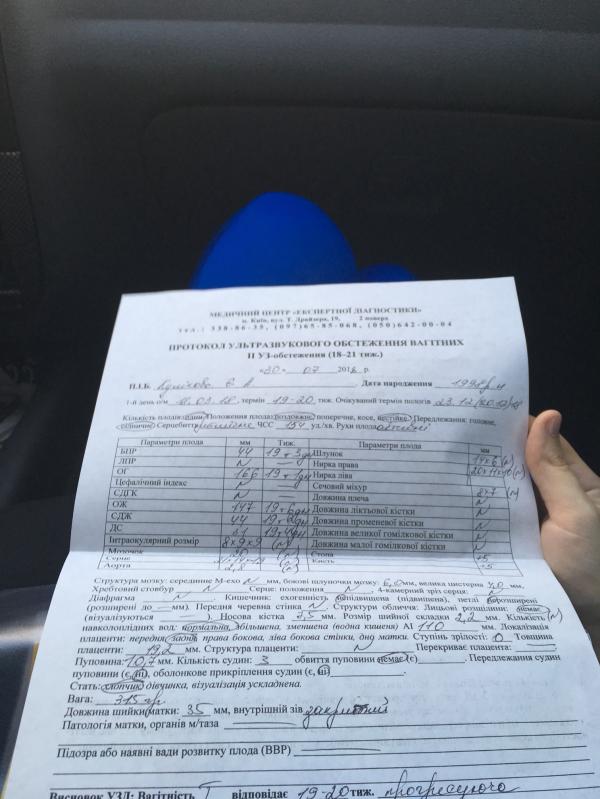 МЕДИЧНИЙ ЦЕНТР «ЕКСПЕРТНОЇ ДІАГНОСТИКИ»
м. Київ, вул. Т. Драйзера, 19, 2 поверх
тел.: 338-86-35, (097)65-85-068, (050)642-00-04
ПРОТОКОЛ УЛЬТРАЗВУКОВОГО ОБСТЕЖЕННЯ ВАГІТНИХ
ІІ УЗ-обстеження (18–21 тиж.)
«30» 07 2018 р.
П.І.Б. Дата народження
1-й день о/м термін 19-20 тиж. Очікуваний термін пологів 23.12
Кількість плодів: один. Положення плода: поздовжнє, поперечне, косе, нестійке. Передлежання: головне,
сідничне. Серцебиття ЧСС 154 уд./хв. Рухи плода активні
Параметри плода мм Тиж. Параметри плода мм
БПР 44 Шлунок
ЛПР N — Нирка права
ОГ 166 Нирка ліва
Цефалічний індекс N — Сечовий міхур
СДГК N — Довжина плеча N
ОЖ 147 Довжина ліктьової кістки N
СДЖ 44 Довжина променевої кістки N
ДС Довжина великої гомілкової кістки N
Інтраокулярний розмір 8х9х9 (N) Довжина малої гомілкової кістки N
Мозочок Стопа
Серце Кисть
Аорта
Структура мозку: серединне М-ехо N мм, бокові шлуночки мозку: 6,0 мм, велика цистерна мм.
Хребтовий стовбур N. Серце: положення N. 4-камерний зріз серця:
Діафрагма N. Кишечник: ехогенність непідвищена (підвищена), петлі нерозширені
(розширені до — мм). Передня черевна стінка N. Структури обличчя: Лицьові розщілини: немає
(візуалізуються ). Носова кістка мм. Розмір шийної складки 2,2 мм. Кількість
навколоплідних вод: нормальна, збільшена, зменшена (водна кишеня) АІ 110 мм. Локалізація
плаценти: передня, задня, права бокова, ліва бокова стінки, дно матки. Ступінь зрілості: 0 Товщина
плаценти: 19,2 мм. Структура плаценти: N. Перекриває плацента:
Пуповина: 10,7 мм. Кількість судин: 3 обвиття пуповини немає (є). Передлежання судин
пуповини (є, ні), оболонкове прикріплення судин (є, ні)
Стать: хлопчик, дівчинка, візуалізація ускладнена.
Вага: 315 гр.
Довжина шийки матки: 35 мм, внутрішній зів закритий
Патологія матки, органів м/таза
Підозра або наявні вади розвитку плода (ВВР)
Висновок УЗД: Вагітність I відповідає 19-20 тиж. прогресуюча